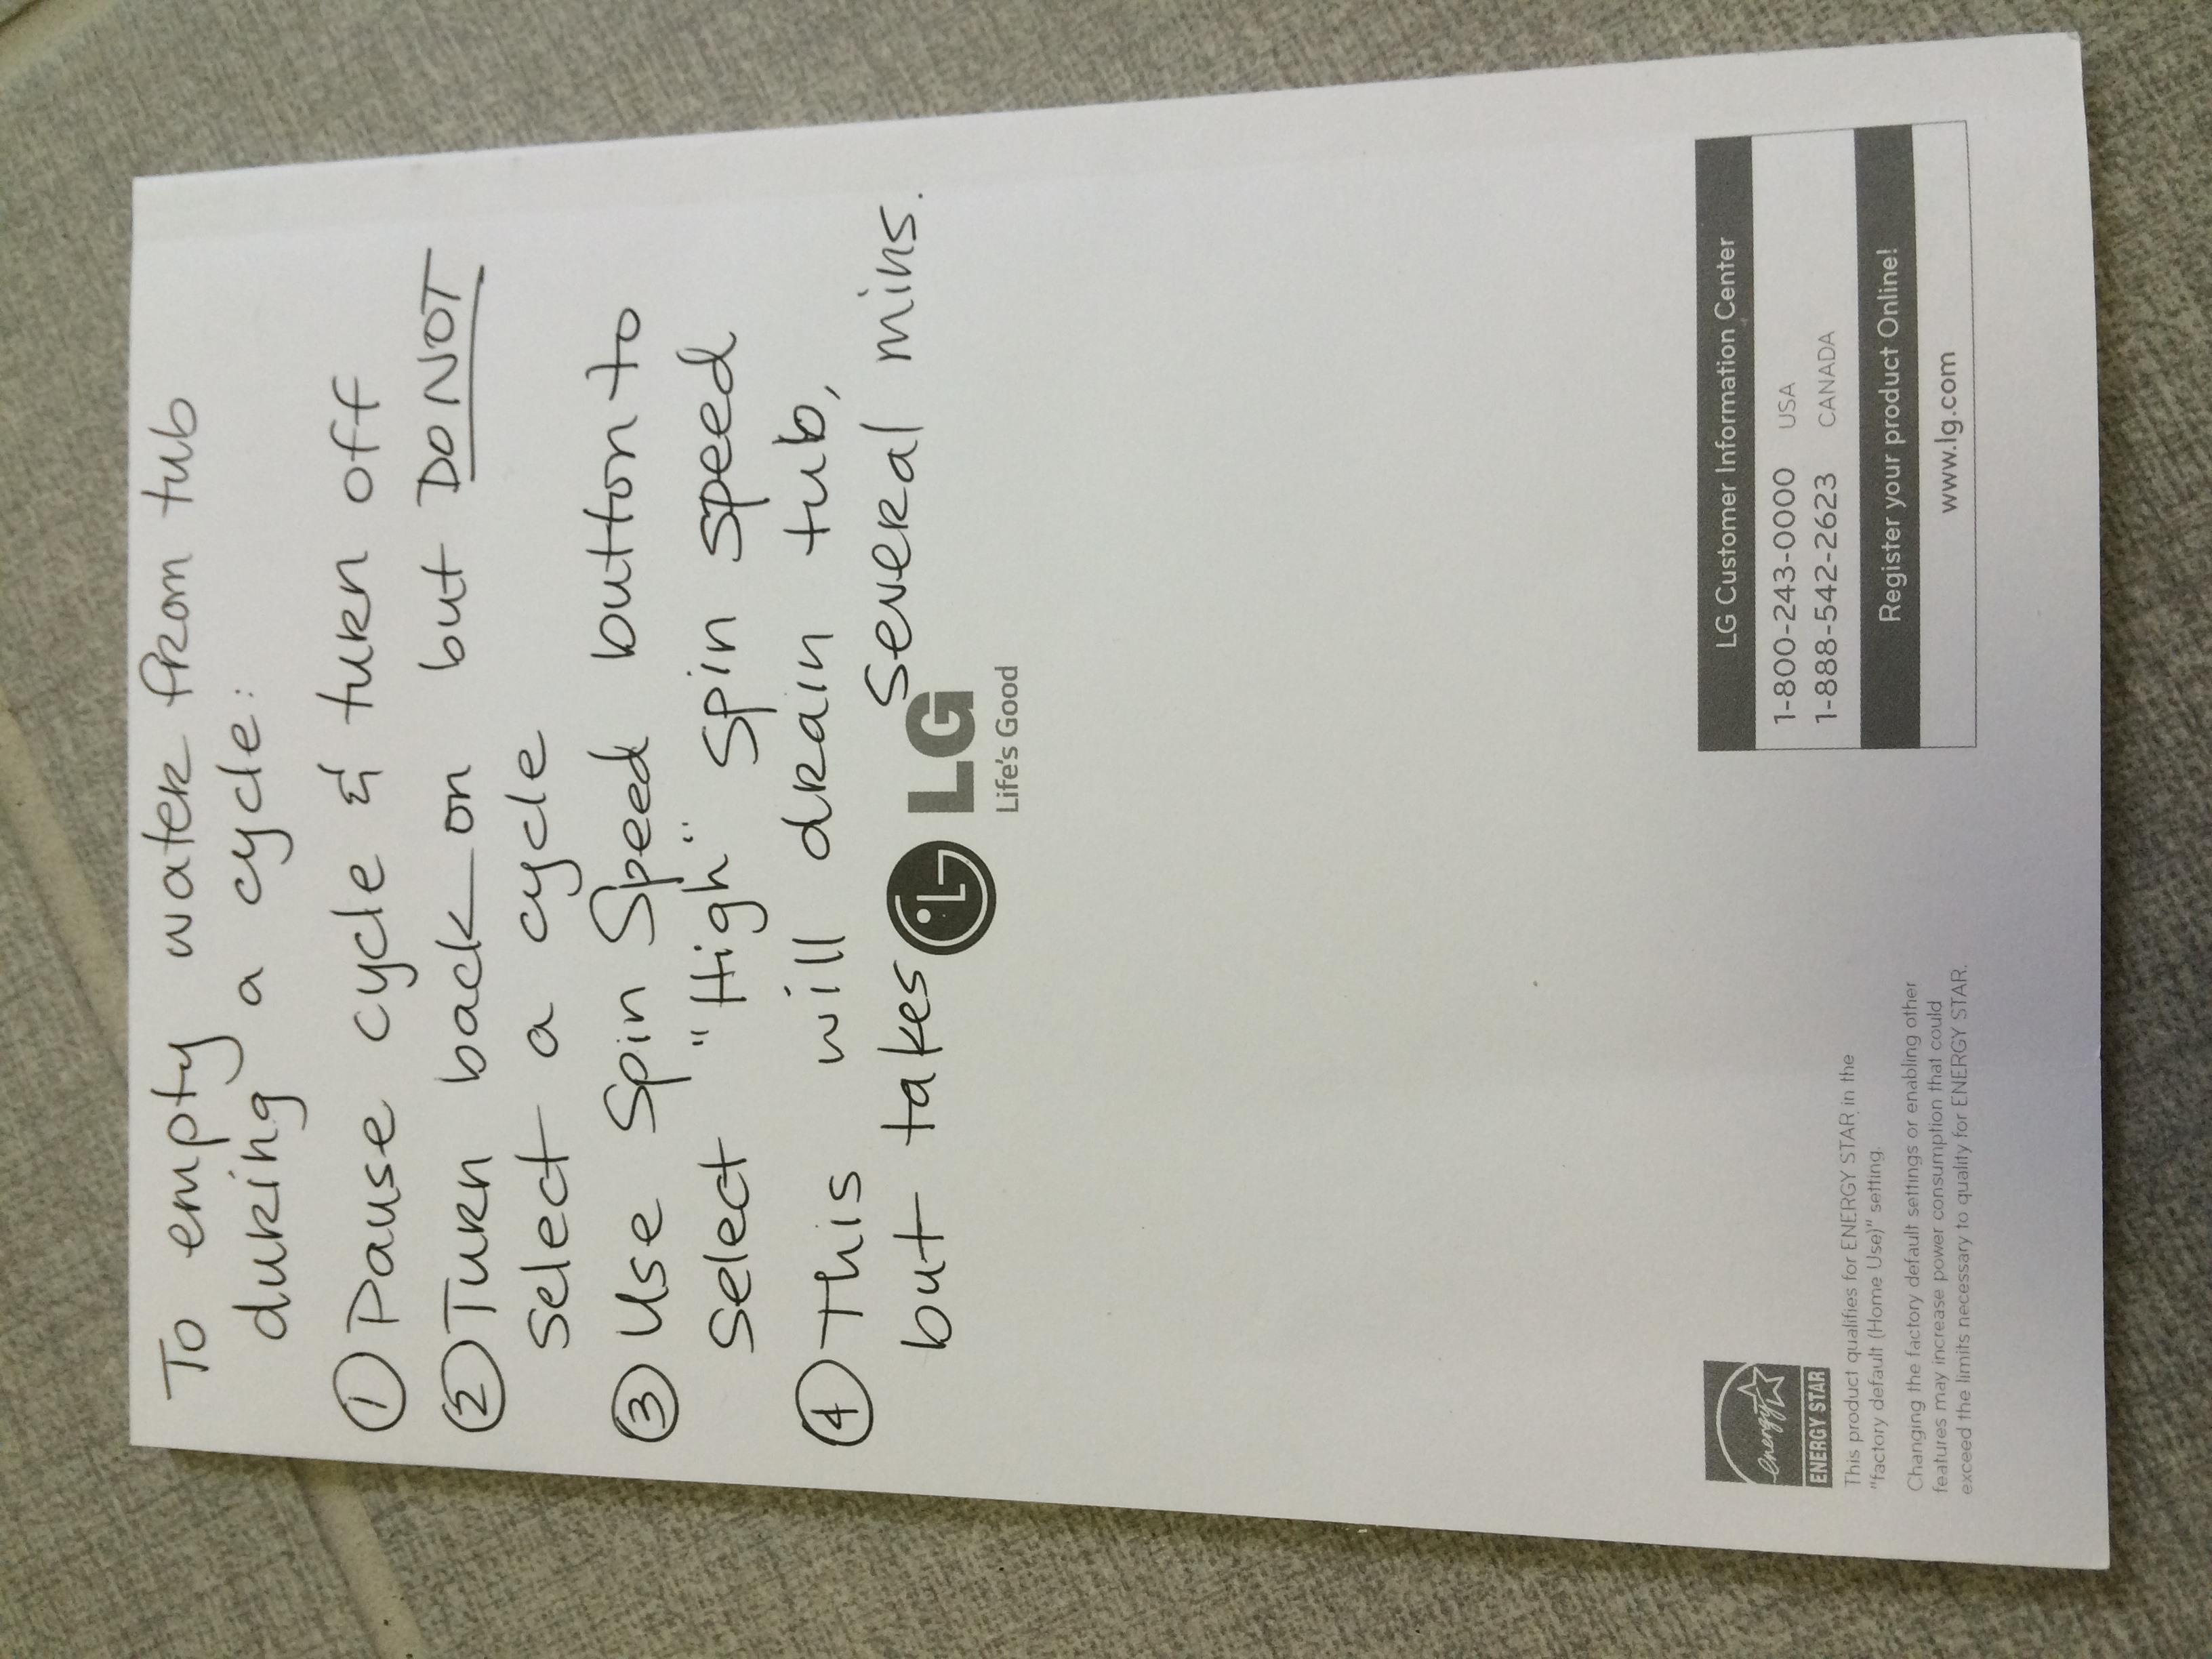 To empty water from tub
during a cycle:
① Pause cycle & turn off
② Turn back on but DO NOT
select a cycle
③ Use Spin Speed button to
select "High" spin speed
④ This will drain tub,
but takes several mins.
LG
Life's Good
ENERGY STAR
This product qualifies for ENERGY STAR in the
"factory default (Home Use)" setting.
Changing the factory default settings or enabling other
features may increase power consumption that could
exceed the limits necessary to quality for ENERGY STAR.
LG Customer Information Center
1-800-243-0000 USA
1-888-542-2623 CANADA
Register your product Online!
www.lg.com